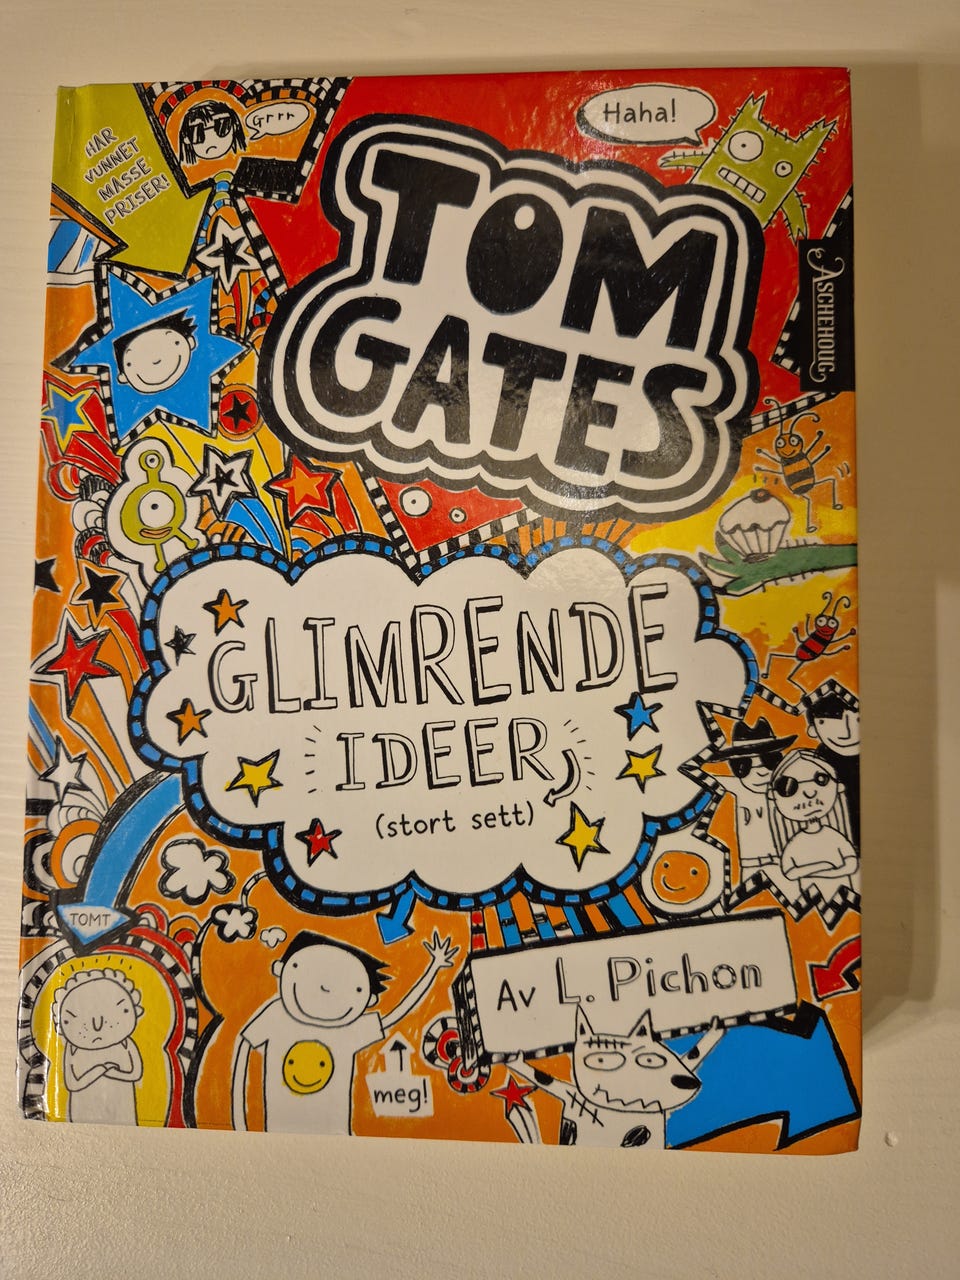 HAR
VUNNET
MASSE
PRISER!
Grrr
Haha!
TOM
GATES
ASCHEHOUG
GLIMRENDE
IDEER
(stort sett)
DV
TOMT
Av L. Pichon
meg!